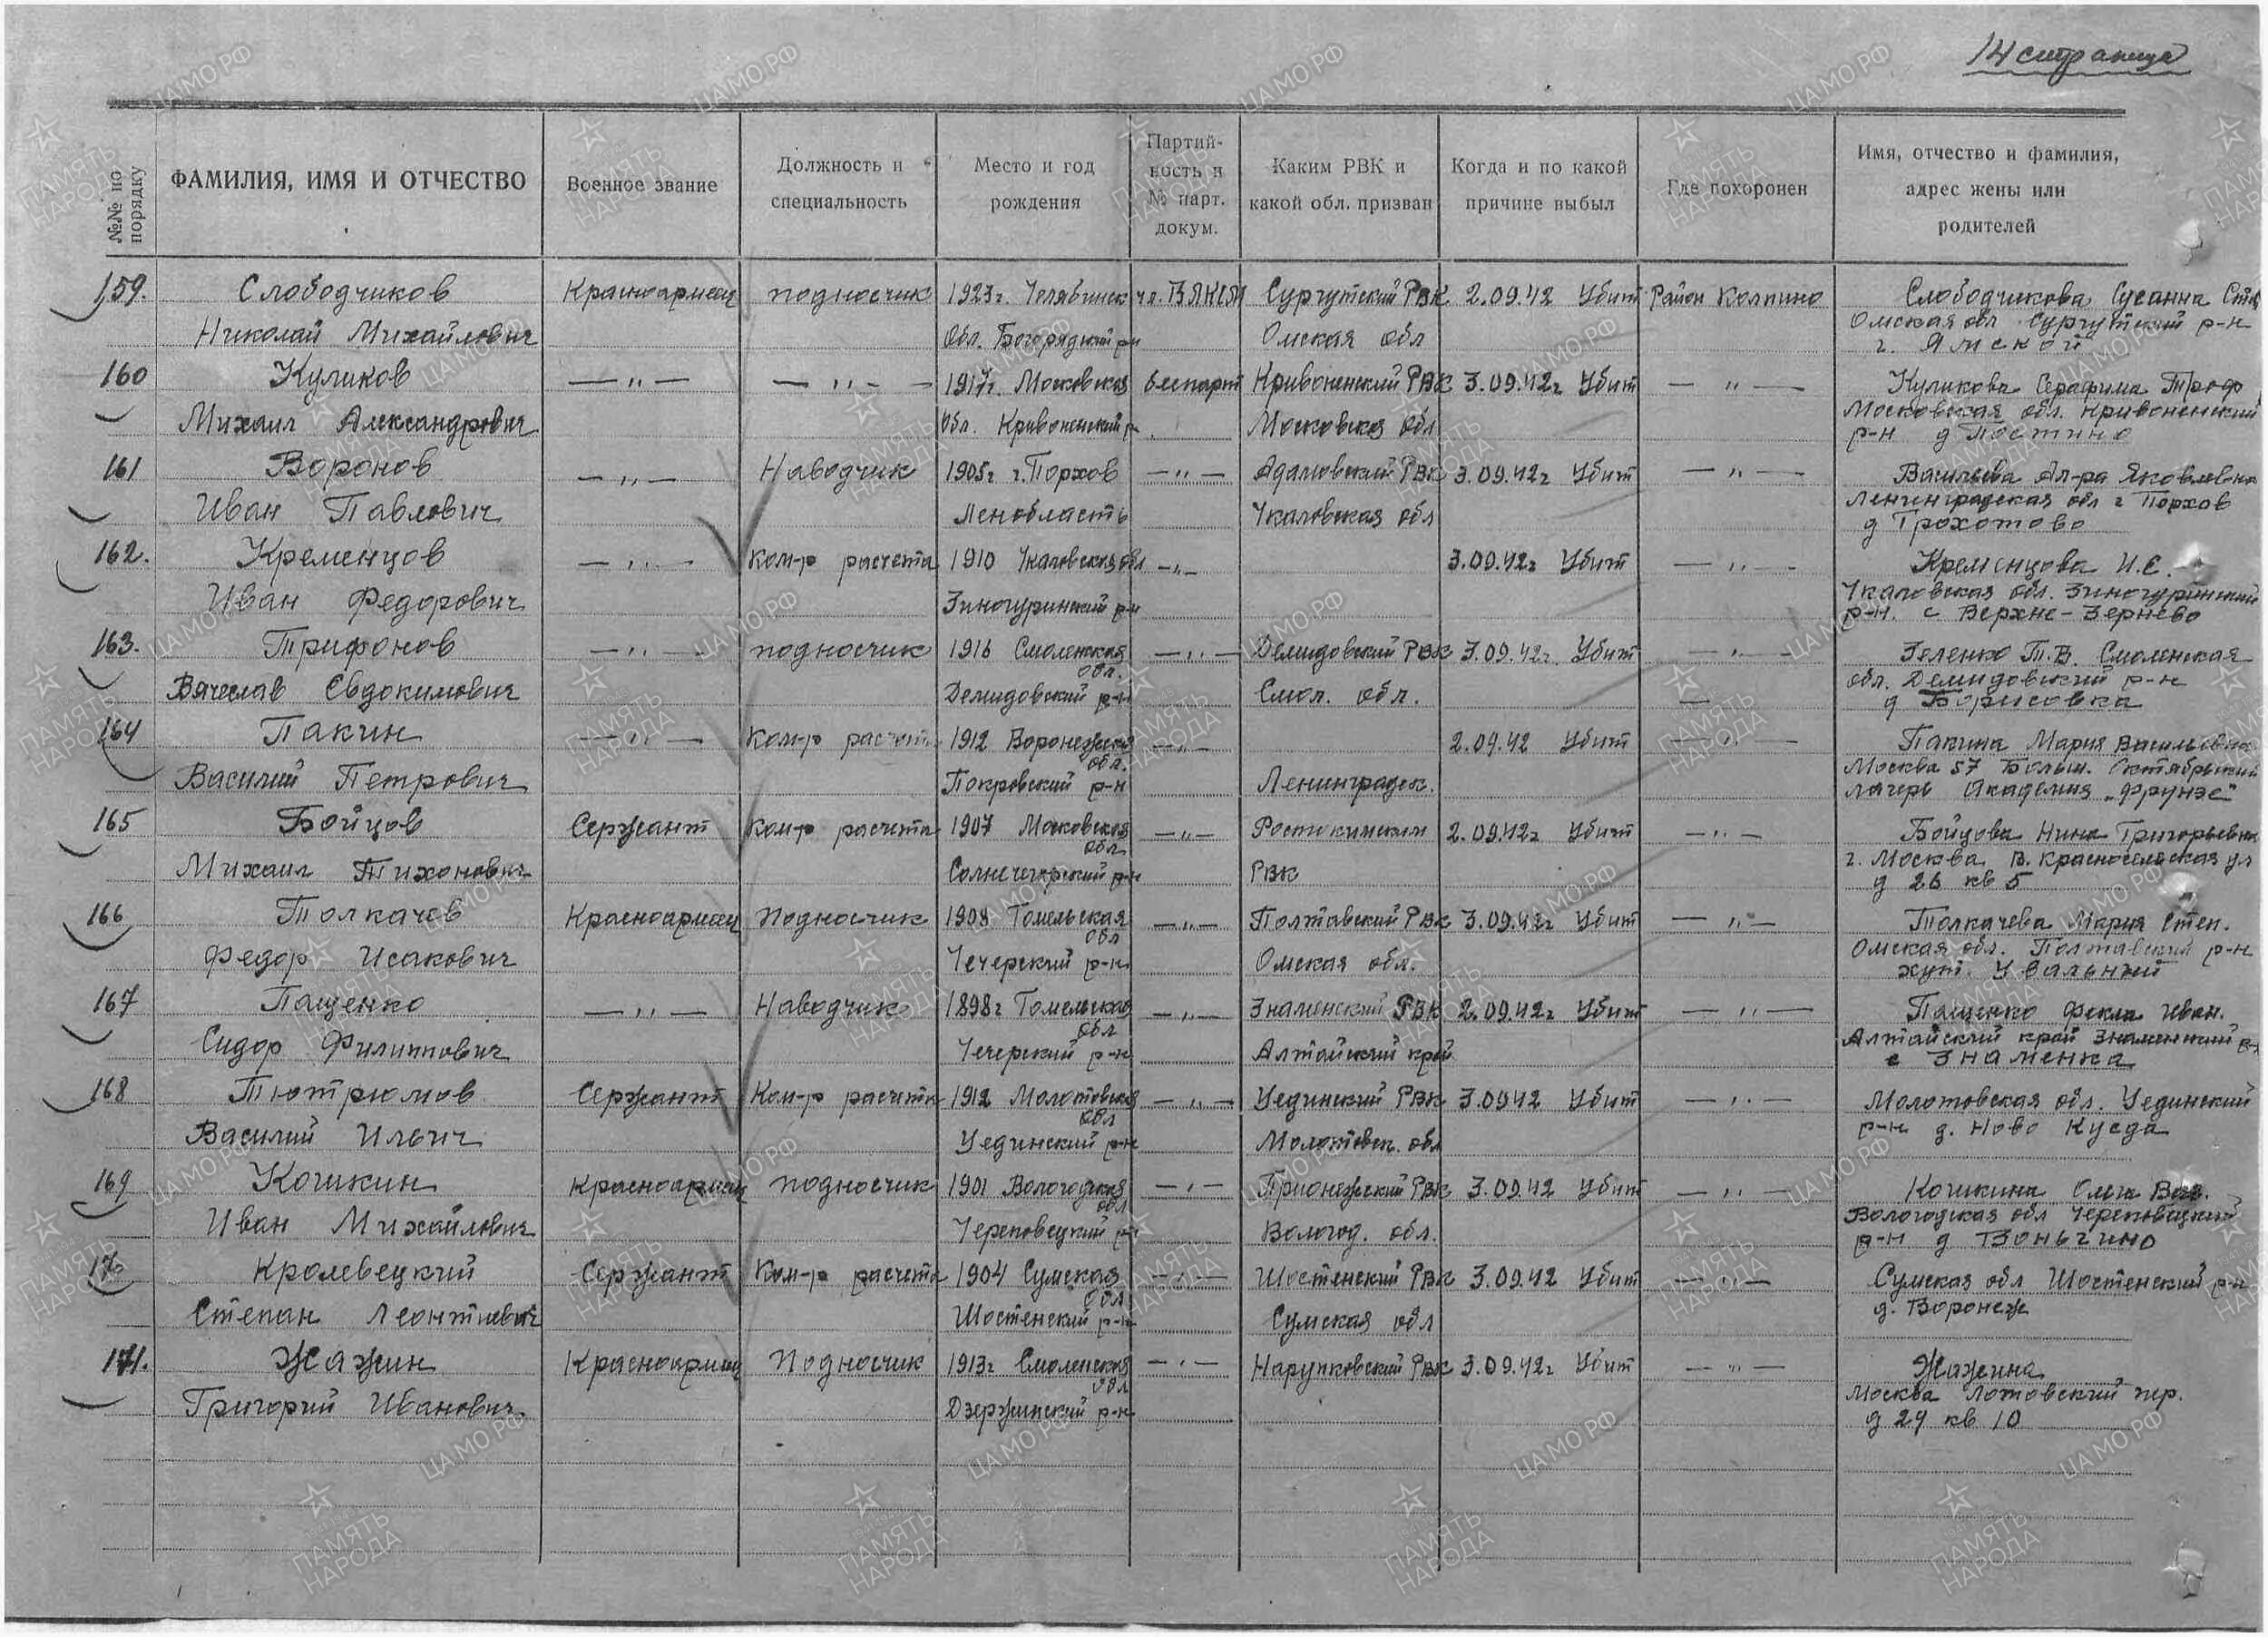 14 страница
№№ по порядку
ФАМИЛИЯ, ИМЯ И ОТЧЕСТВО
Военное звание
Должность и специальность
Место и год рождения
Партий-ность и № парт. докум.
Каким РВК и какой обл. призван
Когда и по какой причине выбыл
Где похоронен
Имя, отчество и фамилия, адрес жены или родителей
159. Слободчиков Красноармеец подносчик 1923г. Челябинск чл. ВЛКСМ Сургутский РВК 2.09.42 Убит Район Колпино Слободчикова Сусанна Ст
Николай Михайлович Обл. Богорядский р-н Омская обл Омская обл Сургутский р-н
г. Ямской
160 Куликов — " — — " — 1917г. Московская беспарт Кривоненский РВК 3.09.42г Убит — " — Куликова Серафима Троф
Михаил Александрович Обл. Кривоненский р Московская обл Московская обл. Кривоненский
р-н д Постино
161 Воронов — " — Наводчик 1905г г. Порхов — " — Адамовский РВК 3.09.42г Убит — " — Васильева Ал-ра Яковлевна
Иван Павлович Ленобласть Чкаловская обл Ленинградская обл г Порхов
д Грохотово
162. Кременцов — " — Ком-р расчета 1910 Чкаловская обл — " — 3.09.42г Убит — " — Кременцова И.Е.
Иван Федорович Зиянчуринский р-н Чкаловская обл. Зиянчуринский
р-н. с Верхне-Зернево
163. Трифонов — " — подносчик 1916 Смоленская обл. — " — Демидовский РВК 3.09.42г. Убит — " — Зеленко Т.В. Смоленская
Вячеслав Евдокимович Демидовский р-н Смол. обл. обл. Демидовский р-н
д Борисовка
164 Пакин — " — Ком-р расчета 1912 Воронежская обл. — " — 2.09.42 Убит — " — Пакина Мария Васильевна
Василий Петрович Покровский р-н Ленинградск. Москва 57 Больш. Октябрьский
лагерь Академия „Фрунзе"
165 Бойцов Сержант Ком-р расчета 1907 Московская обл. — " — Ростокинским 2.09.42г Убит — " — Бойцова Нина Григорьевна
Михаил Тихонович Солнечегорский р-н РВК г. Москва В. Красносельская ул
д 26 кв 5
166 Толкачев Красноармеец Подносчик 1908 Гомельская обл — " — Полтавский РВК 3.09.42г Убит — " — Толкачева Мария Степ.
Федор Исакович Чечерский р-н Омская обл. Омская обл. Полтавский р-н
хут. Увальный
167 Пащенко — " — Наводчик 1898г Гомельская обл — " — Знаменский РВК 2.09.42г Убит — " — Пащенко Фекла Иван.
Сидор Филиппович Чечерский р-н Алтайский край Алтайский край Знаменский р-н
с Знаменка
168 Тютрюмов Сержант Ком-р расчета 1912 Молотовская обл — " — Уединский РВК 3.09.42 Убит — " — Молотовская обл. Уединский
Василий Ильич Уединский р-н Молотовск. обл р-н д. Ново Куеда
169 Кошкин Красноармеец подносчик 1901 Вологодская обл — " — Прионежский РВК 3.09.42 Убит — " — Кошкина Ольга Вас.
Иван Михайлович Череповецкий р-н Вологод. обл. Вологодская обл Череповецкий
р-н д Воньгино
170 Кролевецкий Сержант Ком-р расчета 1904 Сумская обл — " — Шостенский РВК 3.09.42 Убит — " — Сумская обл Шостенский р-н
Степан Леонтиевич Шостенский р-н Сумская обл д. Воронеж
171. Жажин Красноармеец Подносчик 1913г Смоленская обл — " — Нарупковский РВК 3.09.42г Убит — " — Жажина
Григорий Иванович Дзержинский р-н Москва Лотовский пер.
д 29 кв 10
ПАМЯТЬ НАРОДА
ЦАМО.РФ